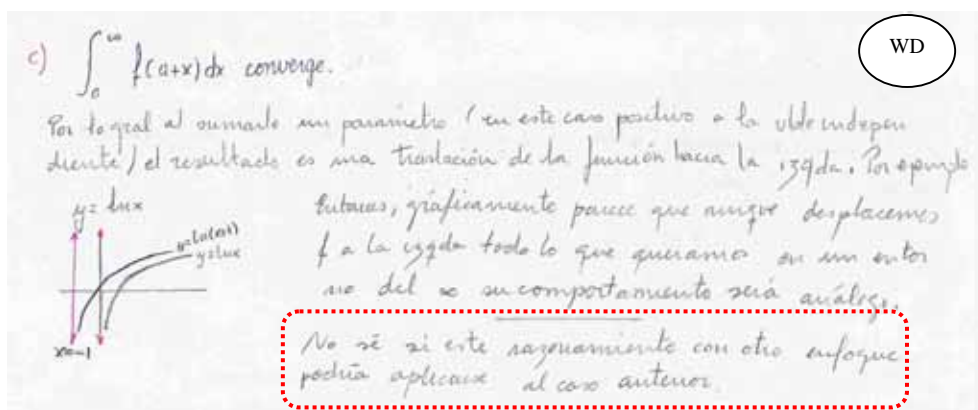 WD
c) ∫₀^∞ f(a+x)dx converge.
Por lo gral al sumarle un parámetro (en este caso positivo a la vble indepen
diente) el resultado es una traslación de la función hacia la izqda. Por ejemplo
y = lnx
y=ln(x+1)
y=lnx
x=-1
Entonces, gráficamente parece que aunque desplacemos
f a la izqda todo lo que queramos en un entor
no del ∞ su comportamiento será análogo.
No sé si este razonamiento con otro enfoque
podría aplicarse al caso anterior.